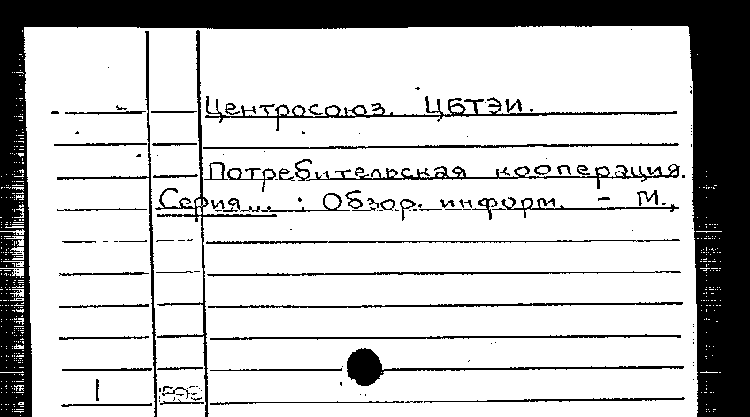 Центросоюз. ЦБТЭИ.
Потребительская кооперация.
Серия... : Обзор. информ. - М.,
1